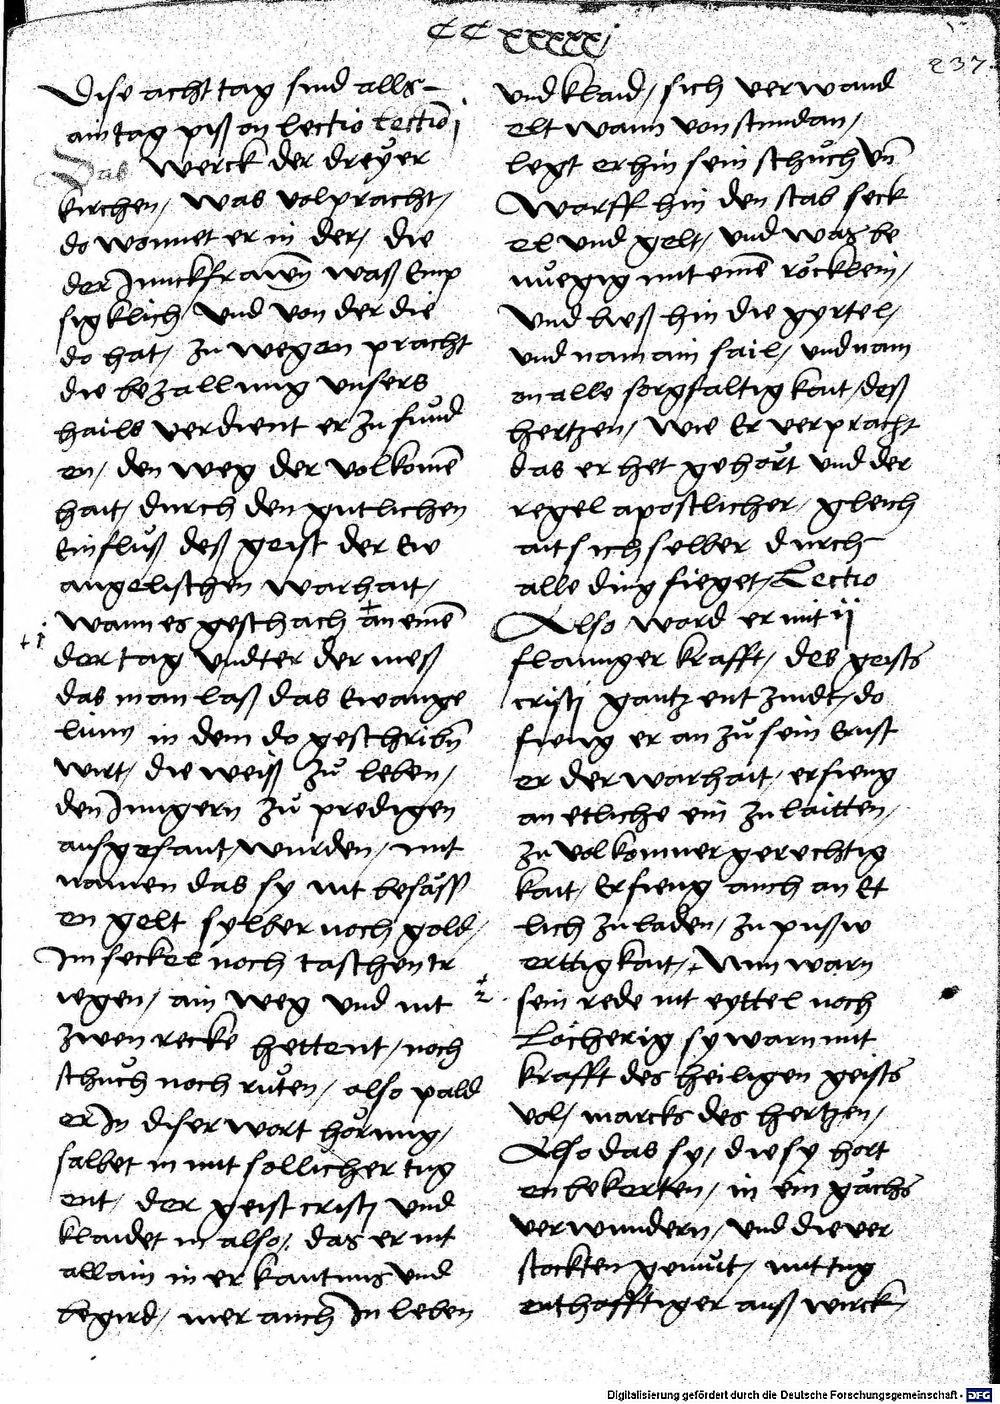 CCxxxxxj
237
Dise acht tag sind alls
ain tag piß an lectio lectio j
Das werck der dreyer
kirchen, was volpracht,
do wonnet er in der, die
der Junckfrawen waß Emp
sigklich, vnd von der die
do hat, zu wegen pracht
die bezallung vnsers
hails verdient er zu fund
en, den weg der volkomē
hait, durch den gutlichen
Einfluß deß geist der Ew
angelischen warhait,
wann es geschach an einē
der tag vndter der meß
das man laß das Ewange
lium in dem do geschribn̄
wirt, die weiß zů leben,
den Jungern zů predigen
ausgesant, wurden, mit
namen das sy nit besåss
en gelt sylber noch gold,
Im seckel noch taschen tr
iegen, ain weg vnd nit
zwen recke hettent, noch
schůch noch růten, also pald
er In diser wort hörung,
salbet in mit sollicher tug
ent, der geist cristj vnd
klaidet in also, das er nit
allain in erkantnus vnd
begird, mer auch In leben
vnd klaid, sich verwand
elt wann von stundan,
legt er hin sein schůch vn̄
Warff hin den stab seck
el vnd gelt, vnd was be
nůegig mit einē röcklein,
Vnd ließ hin die gyrtel,
vnd nam ain sail, vnd nam
on alle sorgfaltigkait, deß
hertzen, wie Er verpracht
das er het gehört vnd der
regel apostlicher, gleich
ait sich selber durch
alle ding fieget, Lectio
Also ward er mit ij
flamiger krafft, des geists
cristj gantz entzindt, do
fieng er an zů sein Ernst
er der warhait, er fieng
an etliche ein zu laitten,
zu volkomner gerechtig
kait, Er fieng auch an Et
lich zu laden, zu pußw
ertigkait, Nun warn
sein rede nit eyttel noch
Löcherig sy warn mit
krafft des heiligen geists
vol, marcks des hertzen,
Also das sy, die sy hort
en bekerten, in ein gåchs
verwundern, vnd die ver
stockten gemůt, mit tug
enthafftiger auß wirck,
Digitalisierung gefördert durch die Deutsche Forschungsgemeinschaft - DFG